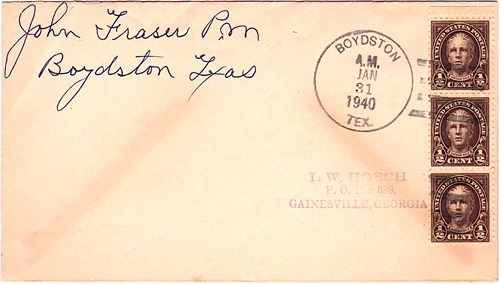 John Fraser Pm
Boydston Texas
BOYDSTON
A.M.
JAN
31
1940
TEX.
L. W. HOSCH
P. O. 689,
GAINESVILLE, GEORGIA
UNITED STATES POSTAGE
1/2 CENT 1/2
UNITED STATES POSTAGE
1/2 CENT 1/2
UNITED STATES POSTAGE
1/2 CENT 1/2